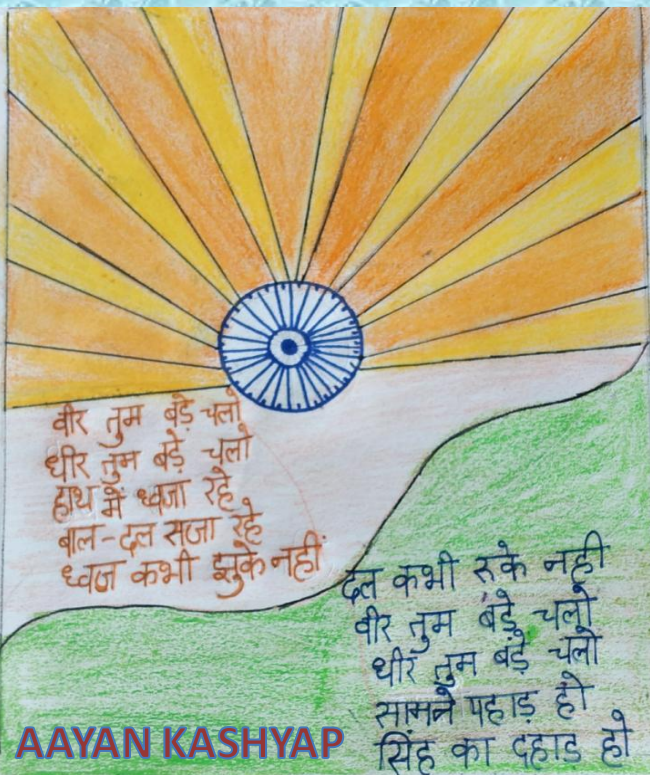 वीर तुम बंड़े चलो
धीर तुम बंड़े चलो
हाथ में ध्वजा रहे
बाल-दल सजा रहे
ध्वज कभी झुके नहीं
दल कभी रुके नही
वीर तुम बंड़े चलो
धीर तुम बंड़े चलो
सामने पहाड़ हो
सिंह का दहाड हो
AAYAN KASHYAP